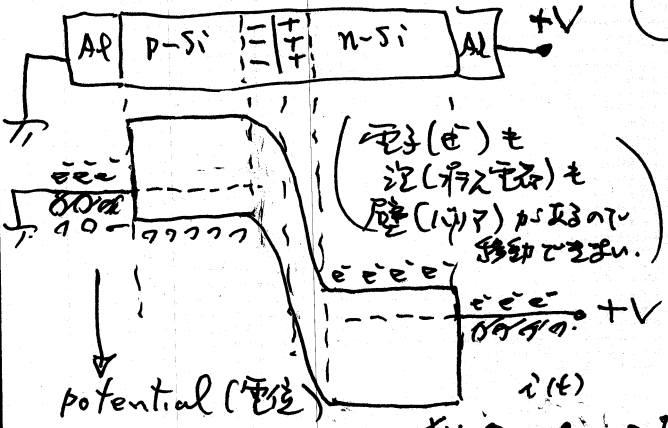 Al p-Si - + n-Si Al +V
- +
- +
電子(e⁻)も
泡(プラス電荷)も
壁(バリア)があるので
移動できない.
e⁻ e⁻ e⁻
e⁻ e⁻ e⁻ e⁻
e⁻ e⁻ e⁻ +V
potential (電位)
i(t)